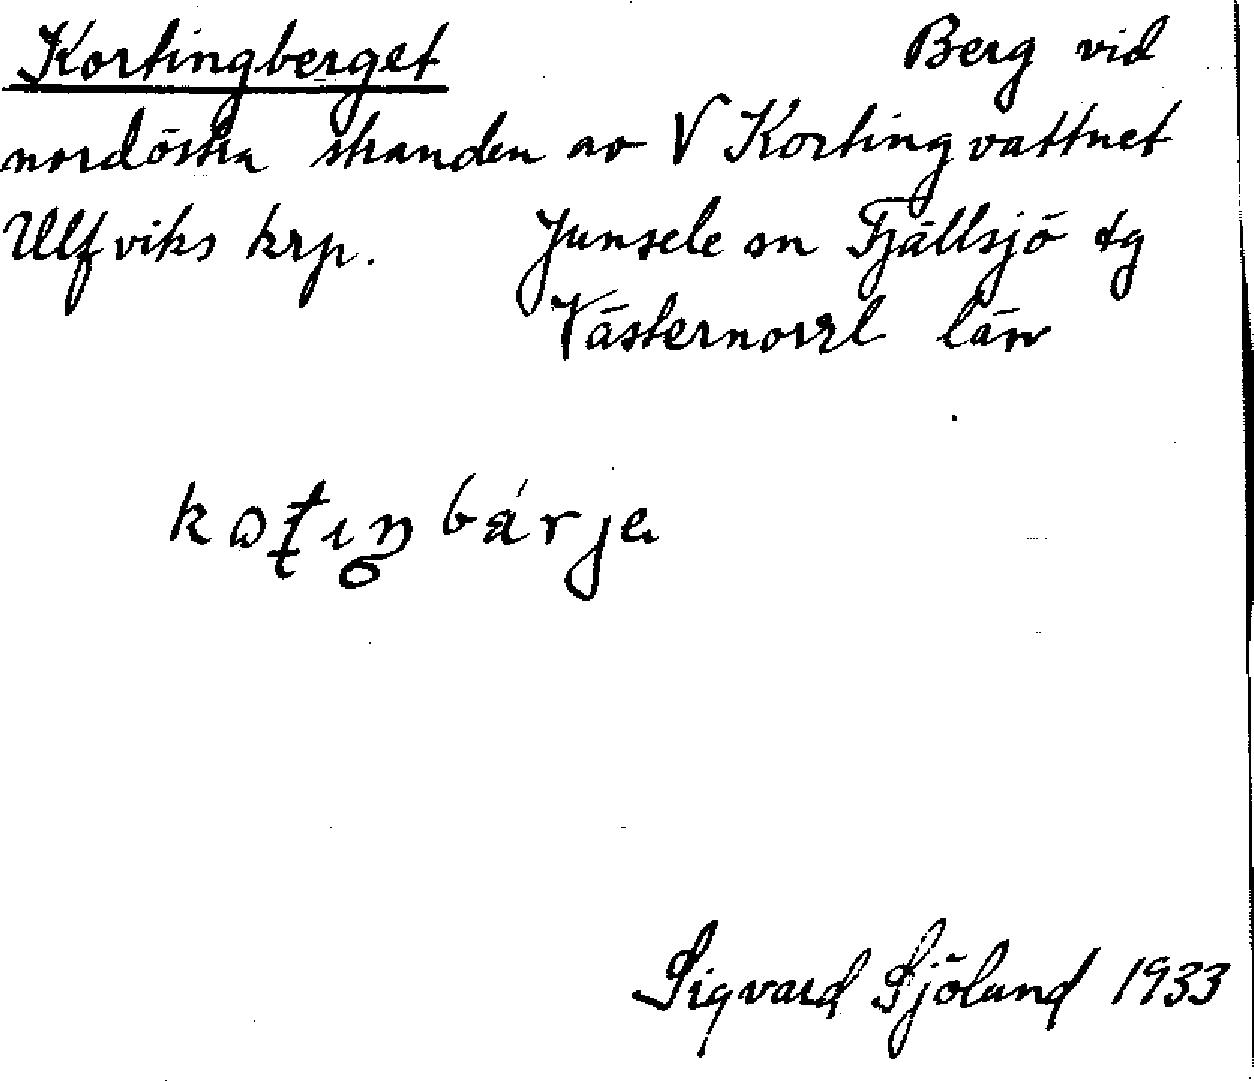 Kortingberget Berg vid
nordöstra stranden av V Kortingvattnet
Ulfviks krp. Junsele sn Fjällsjö tg
Västernorrl län
Sigvard Sjölund 1933